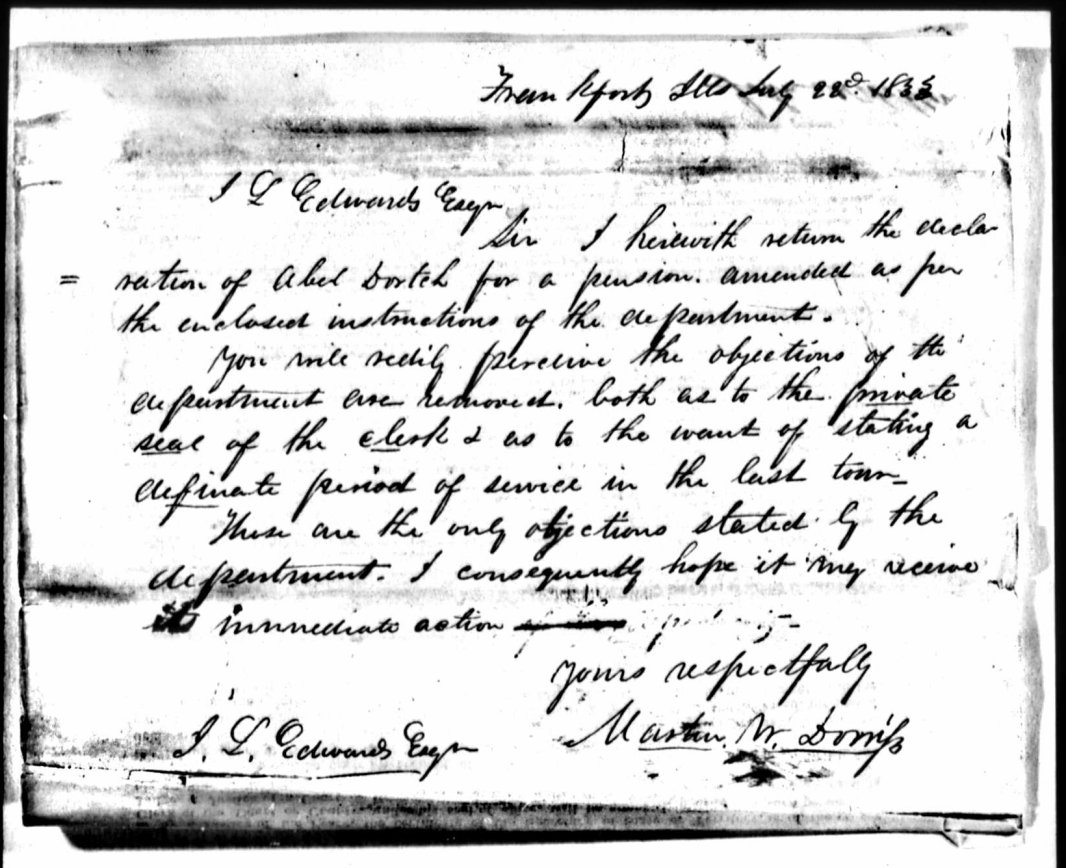 Frankfort Ills July 22d. 1833
J L Edwards Esqr
Sir I heirwith return the decla
= ration of Abel Dortch for a pension. amended as per
the enclosed instructions of the department.
You will redily percieve the objections of the
department are removed. both as to the private
seal of the clerk & as to the want of stating a
definate period of service in the last tour_
These are the only objections stated by the
department. I consequently hope it may receive
immediate action
yours respectfully
Martin. W. Dorriss
J. L. Edwards Esqr